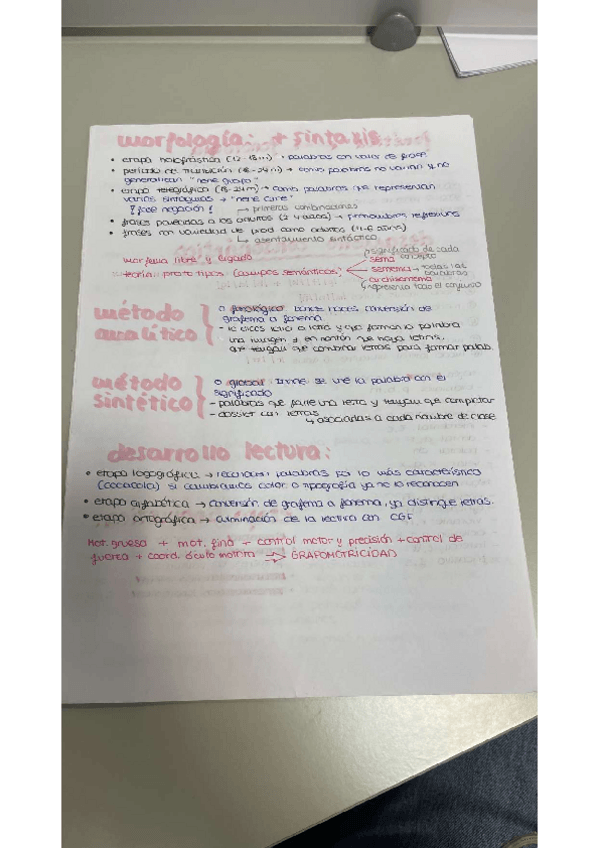 morfología: + sintaxis
• etapa holofrástica (12-18m) → palabras con valor de frase
• período de transición (18-24m) → como palabras no varían y no
generalizan "nene guapo"
• etapa telegráfica (18-24m) → como palabras que representan
varios sintagmas → "nene carne"
¡fase negación! → primeras combinaciones
• frases parecidas a los adultos (2-4 años) → pronombres reflexivos
• frases con variedad de prod como adultos (4-6 años)
↳ asentamiento sintáctico
morfema libre y ligado
teoría prototipos (campos semánticos)
↗ significado de cada concepto
sema
semema → todas las palabras
archisemema
↳ representa todo el conjunto
método analítico
o fonológico: donde haces conversión de
grafema a fonema
- le dices letra a letra y que forman la palabra
una imagen y en montón que haya letras,
que tengan que combinar letras para formar palab.
método sintético
o global: donde se une la palabra con el
significado
- palabras que falte una letra y tengan que completar
- dossier con letras
↳ asociarlas a cada nombre de clase
desarrollo lectura:
• etapa logográfica → reconocen palabras por lo más característico
(cocacola) si cambiamos color o tipografía ya no lo reconocen
• etapa alfabética → conversión de grafema a fonema, ya distingue letras.
• etapa ortográfica → culminación de la lectura con CGF
Mot. gruesa + mot. fina + control motor y precisión + control de
fuerza + coord. óculo motriz → GRAFOMOTRICIDAD